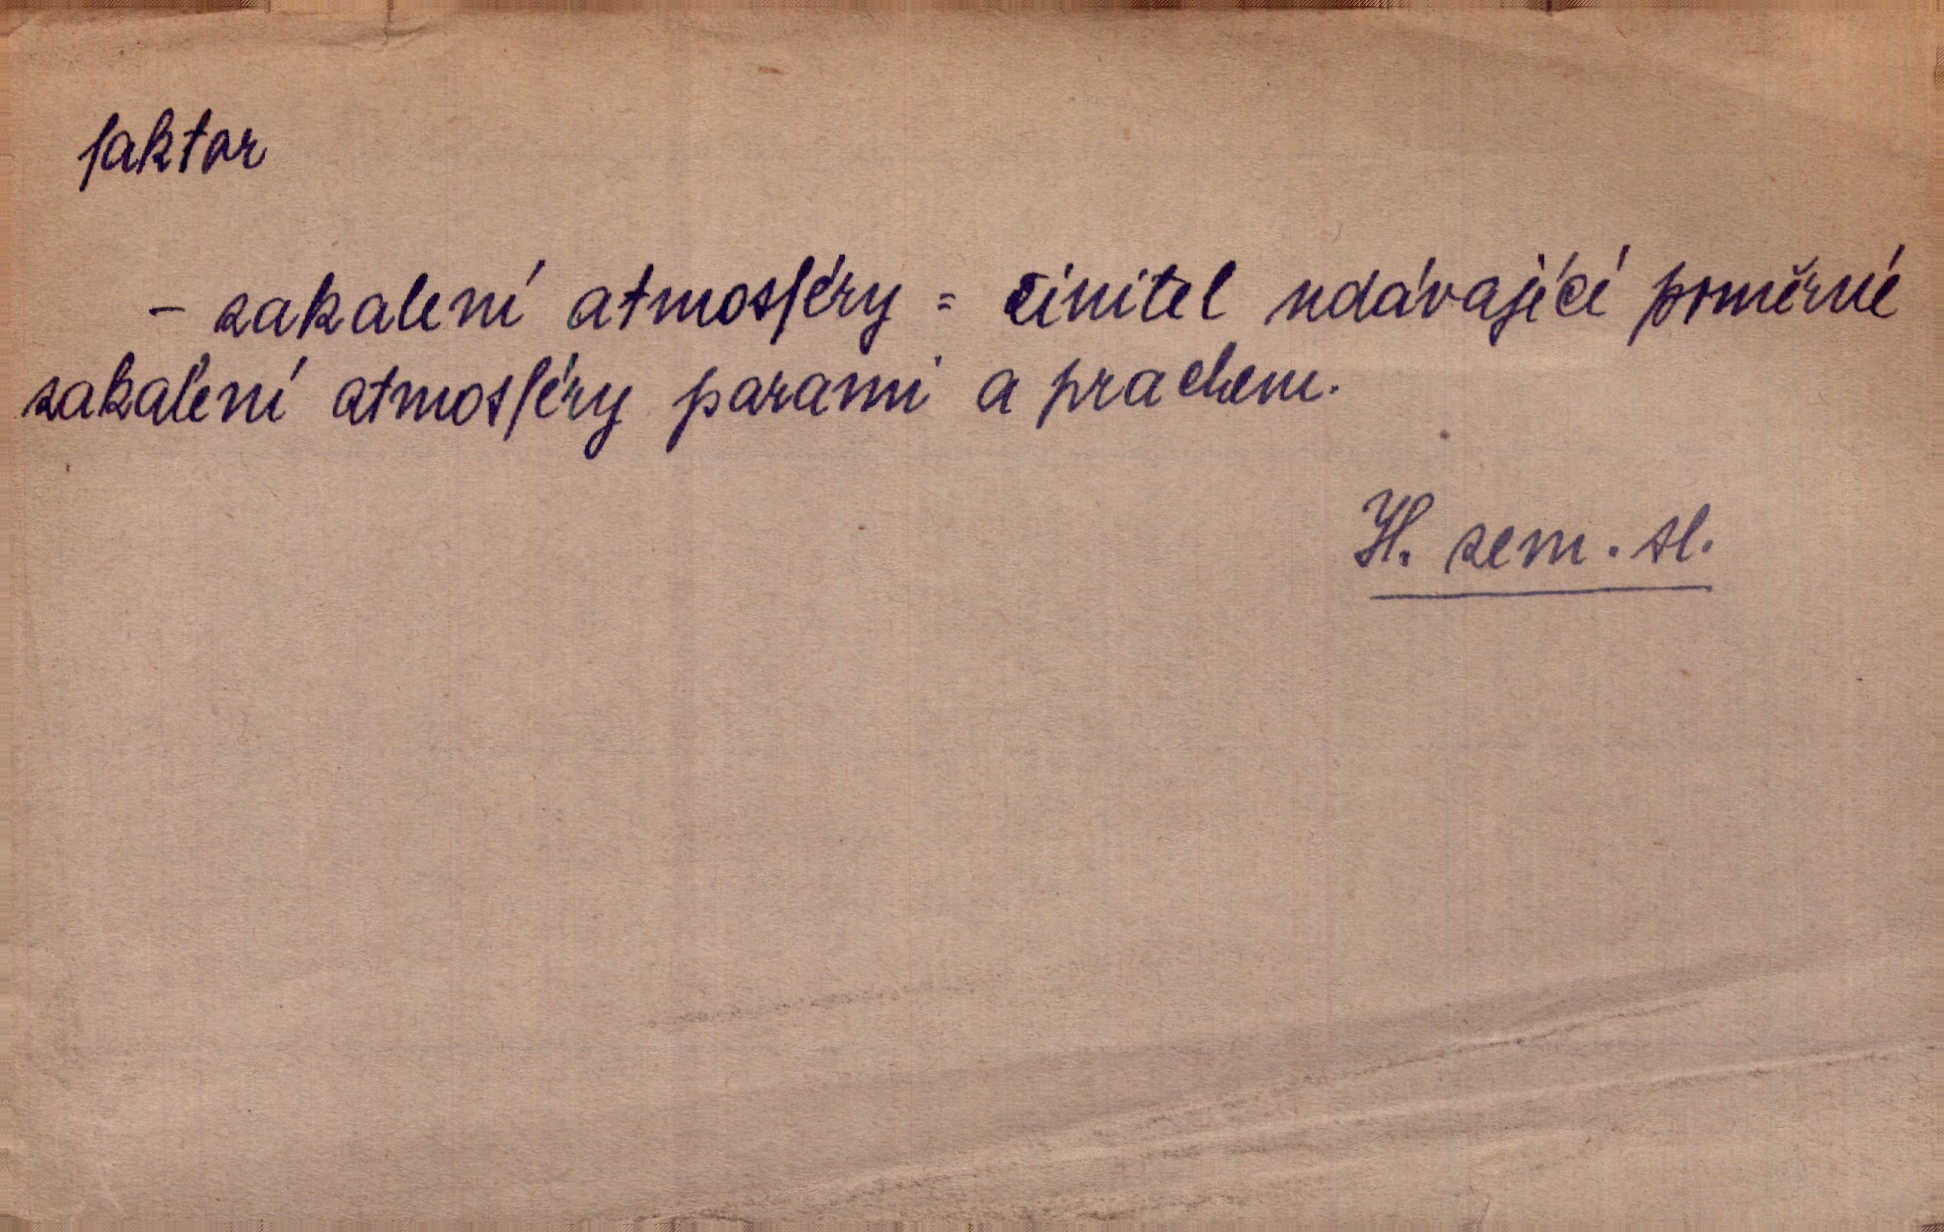 faktor
- zakalení atmosféry = činitel udávající poměrné
zakalení atmosféry parami a prachem.
H. zem. sl.